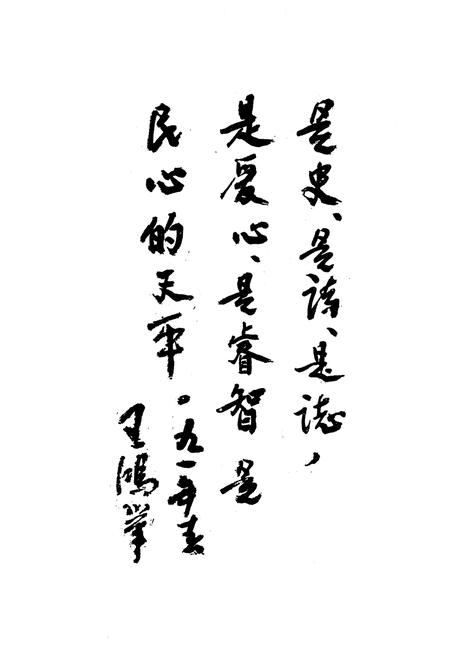 是史、是诗、是誌，
是爱心、是睿智 是
民心的天平。九一年春
王鸿举